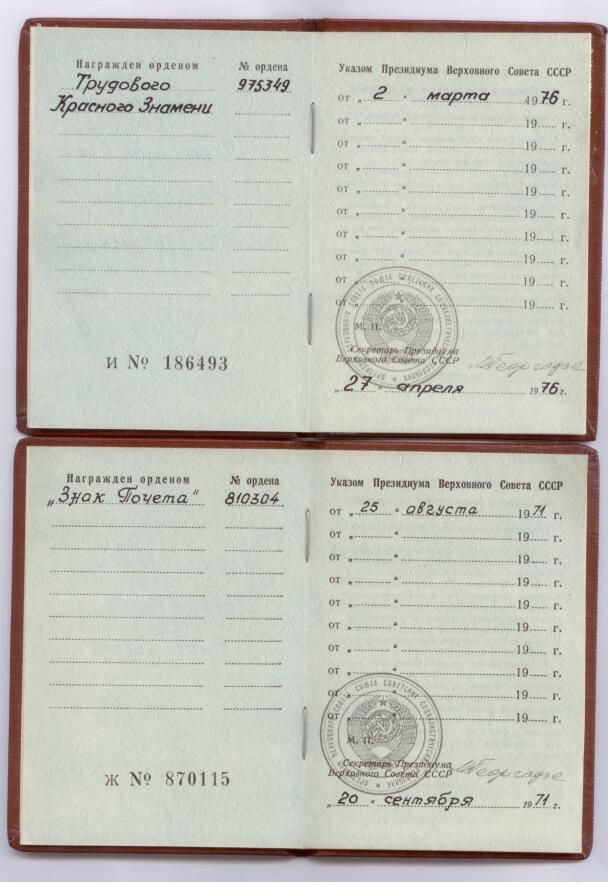 Награжден орденом № ордена
Трудового 975349
Красного Знамени
И № 186493
Указом Президиума Верховного Совета СССР
от „ 2 “ марта 1976 г.
от „ “ 19 г.
от „ “ 19 г.
от „ “ 19 г.
от „ “ 19 г.
от „ “ 19 г.
от „ “ 19 г.
от „ “ 19 г.
от „ “ 19 г.
от „ “ 19 г.
М. П.
Секретарь Президиума
Верховного Совета СССР МГеоргадзе
„ 27 “ апреля 1976 г.
Награжден орденом № ордена
„Знак Почета“ 810304
Ж № 870115
Указом Президиума Верховного Совета СССР
от „ 25 “ августа 1971 г.
от „ “ 19 г.
от „ “ 19 г.
от „ “ 19 г.
от „ “ 19 г.
от „ “ 19 г.
от „ “ 19 г.
от „ “ 19 г.
от „ “ 19 г.
от „ “ 19 г.
М. П.
Секретарь Президиума
Верховного Совета СССР МГеоргадзе
„ 20 “ сентября 1971 г.